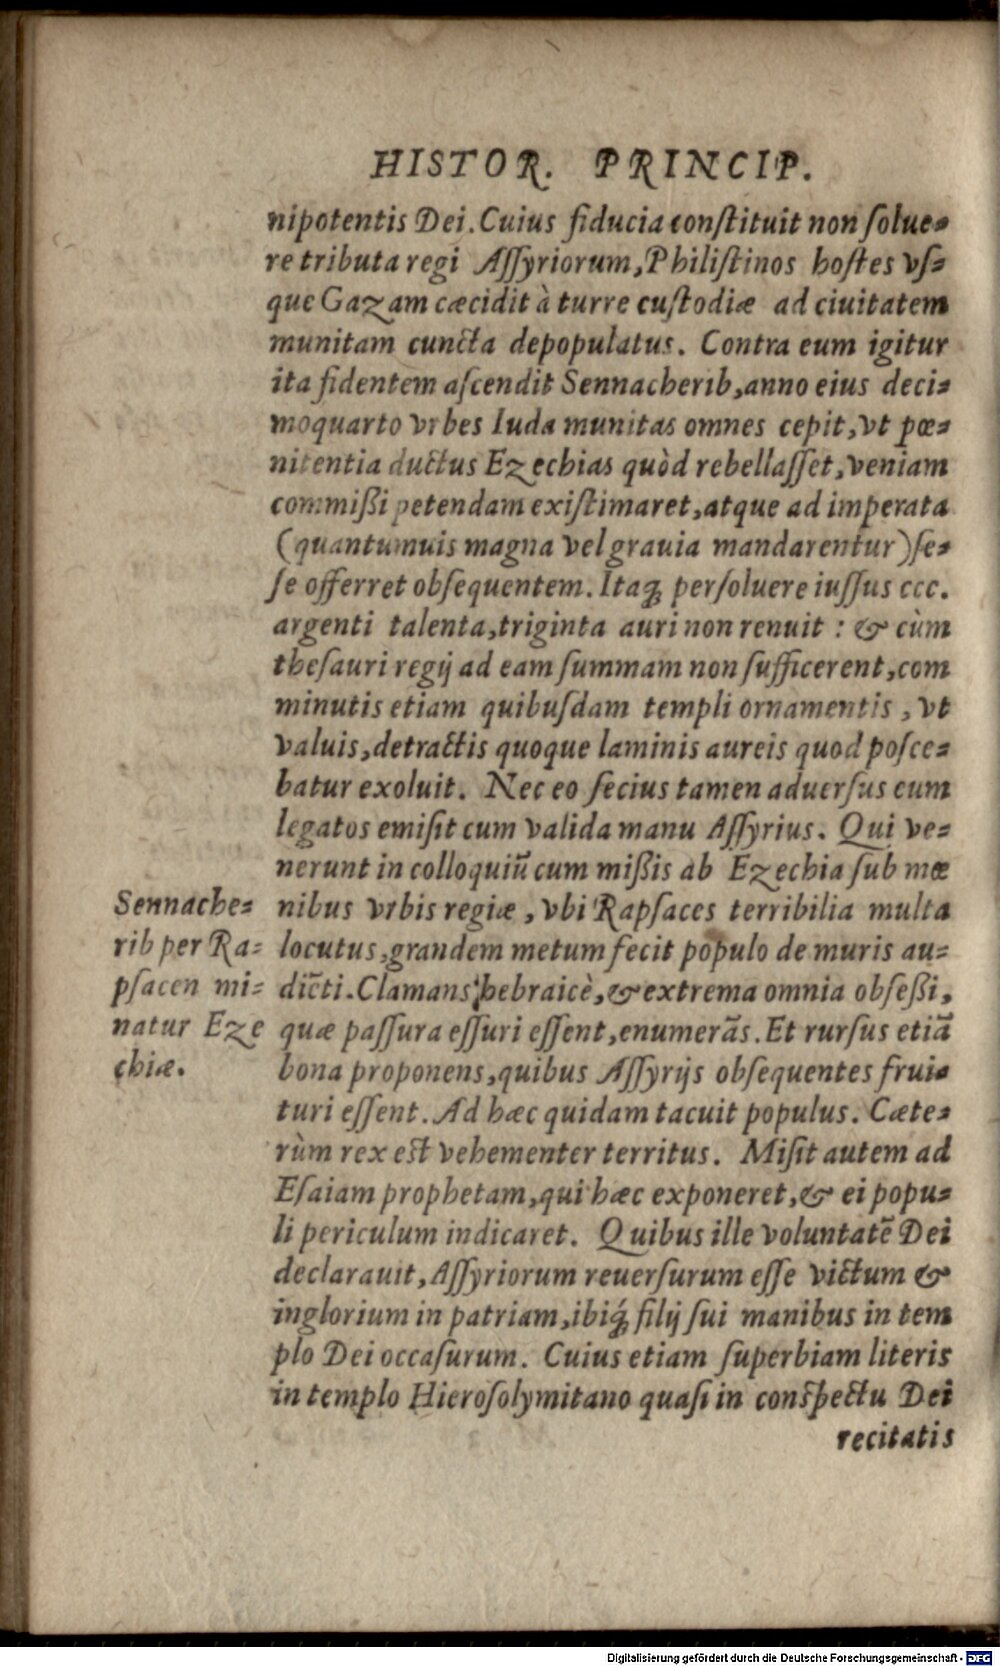 HISTOR. PRINCIP.
nipotentis Dei. Cuius fiducia constituit non ſolue-
re tributa regi Aſſyriorum, Philiſtinos hoſtes vſ-
que Gazam cæcidit à turre cuſtodiæ ad ciuitatem
munitam cuncta depopulatus. Contra eum igitur
ita fidentem aſcendit Sennacherib, anno eius deci-
moquarto vrbes Iuda munitas omnes cepit, vt pœ-
nitentia ductus Ezechias quòd rebellaſſet, veniam
commißi petendam exiſtimaret, atque ad imperata
(quantumuis magna vel grauia mandarentur) ſe-
ſe offerret obſequentem. Itaq; perſoluere iuſſus ccc.
argenti talenta, triginta auri non renuit : & cùm
theſauri regij ad eam ſummam non ſufficerent, com
minutis etiam quibuſdam templi ornamentis, vt
valuis, detractis quoque laminis aureis quod poſce-
batur exoluit. Nec eo ſecius tamen aduerſus eum
legatos emiſit cum valida manu Aſſyrius. Qui ve-
nerunt in colloquiū cum mißis ab Ezechia ſub mœ
nibus vrbis regiæ, vbi Rapſaces terribilia multa
locutus, grandem metum fecit populo de muris au-
dicti. Clamans hebraicè, & extrema omnia obſeßi,
quæ paſſura eſſuri eſſent, enumerās. Et rurſus etiā
bona proponens, quibus Aſſyrijs obſequentes frui-
turi eſſent. Ad hæc quidam tacuit populus. Cæte-
rùm rex eſt vehementer territus. Miſit autem ad
Eſaiam prophetam, qui hæc exponeret, & ei popu-
li periculum indicaret. Quibus ille voluntatē Dei
declarauit, Aſſyriorum reuerſurum eſſe victum &
inglorium in patriam, ibiq́; filij ſui manibus in tem
plo Dei occaſurum. Cuius etiam ſuperbiam literis
in templo Hieroſolymitano quaſi in conſpectu Dei
recitatis
Sennache-
rib per Ra-
pſacen mi-
natur Eze
chiæ.
Digitalisierung gefördert durch die Deutsche Forschungsgemeinschaft - DFG